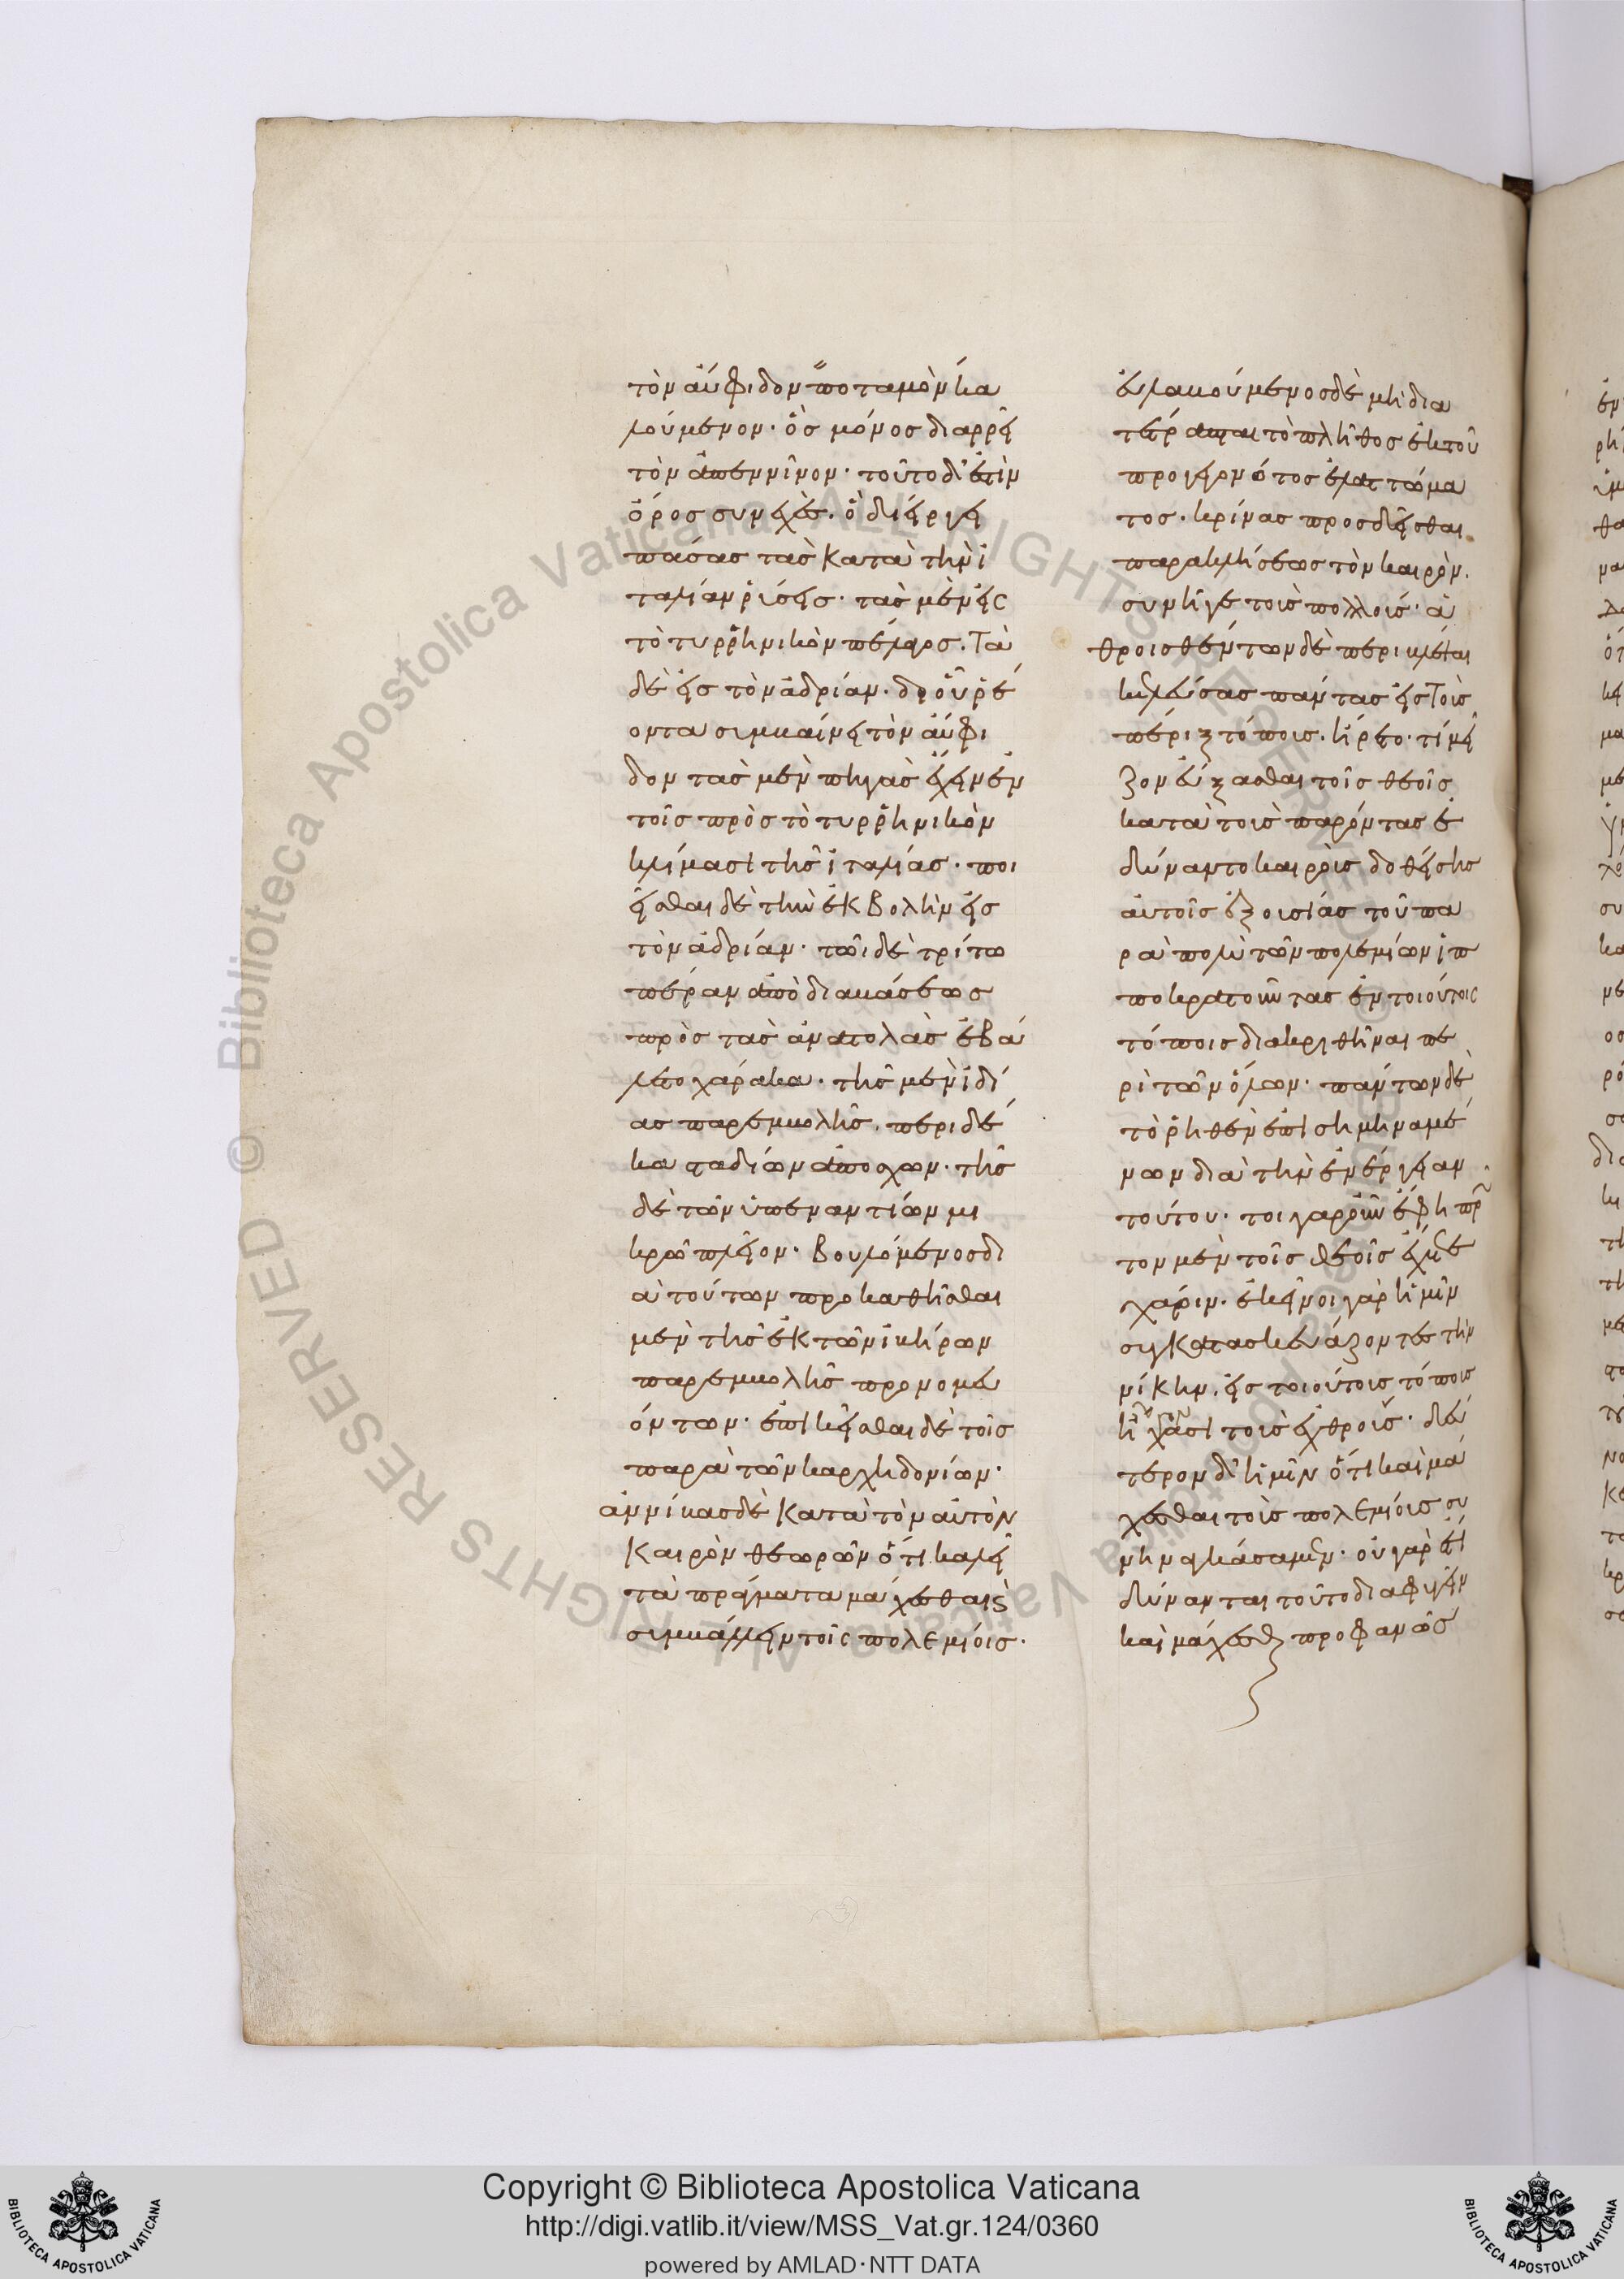 τὸν αὔφιδον ποταμὸν κα
λούμενον· ὃσ μόνοσ διαρρεῖ
τὸν ἀπεννῖνον· τοῦτο δ' ἐστὶν
ὄροσ συνεχὲσ· ὃ διείργει
πάσασ τὰσ κατὰ τὴν ἰ
ταλίαν ῥύσεισ· τὰσ μὲν εἰς
τὸ τυρρηνικὸν πέλαγοσ· τὰ
δὲ εἰσ τὸν ἀδρίαν· δι οὗ ῥέ
οντα συμβαίνει τὸν αὔφι
δον τὰσ μὲν πηγὰσ ἔχειν ἐν
τοῖσ πρὸσ τὸ τυρρηνικὸν
κλίμασι τῆσ ἰταλίασ· ποι
εῖσθαι δὲ τὴν ἐκβολὴν εἰσ
τὸν ἀδρίαν· τῶι δὲ τρίτω
πέραν ἀπὸ διαβάσεωσ
πρὸσ τὰσ ἀνατολὰσ ἐβά
λετο χάρακα· τῆσ μὲν ἰδί
ασ παρεμβολῆσ· περὶ δέ
κα σταδίων ἀποσχων· τῆσ
δὲ τῶν ὑπεναντίων μι
κρῶ πλεῖον· βουλόμενοσ δι
ὰ τούτων προκαθῆσθαι
μὲν τῆσ ἐκ τῶν ἰβήρων
παρεμβολῆσ προνομευ
όντων· ἐπικεῖσθαι δὲ τοῖσ
παρὰ τῶν καρχηδονίων·
ἀννίβασ δὲ κατὰ τὸν αὐτὸν
καιρὸν θεωρῶν ὅτι καλεῖ
τὰ πράγματα μάχεσθαι ϗ
συμβάλλειν τοῖς πολεμίοισ·
εὐλαβούμενοσ δὲ μὴ δια
τέτραπται τὸ πλῆθοσ ἐκ τοῦ
προγεγονότοσ ἐλαττώμα
τοσ· κρίνασ προσδεῖσθαι
παρακλήσεωσ τὸν καιρὸν·
συνῆγε τοὺσ πολλούσ· ἁ
θροισθέντων δὲ περιβλέψαι
κελεύσασ πάντασ εἰσ τοὺσ
πέριξ τόπουσ· ἤρετο· τί μεῖ
ζον εὔξασθαι τοῖσ θεοῖσ
κατὰ τοὺσ παρόντασ ἐ
δύναντο καιροὺσ δοθείσησ
αὐτοῖσ ἐξουσίασ τοῦ πα
ρὰ πολὺ τῶν πολεμίων ἱπ
ποκρατοῦντασ ἐν τοιούτοις
τόποισ διακριθῆναι πε
ρὶ τῶν ὅλων· πάντων δὲ
τὸ ῥηθὲν ἐπισημηναμέ
νων διὰ τὴν ἐνέργειαν
τούτου· τοιγαροῦν ἔφη πρῶ
τον μὲν τοῖσ θεοῖσ ἔχετε
χάριν· ἐκεῖνοι γὰρ ἡμῖν
συγκατασκευάζοντεσ τὴν
νίκην, εἰσ τοιούτουσ τόπουσ
ἤγασι τοὺσ ἐχθρούσ· δεύ
τερον δ' ἡμῖν ὅτι καὶ μά
χεσθαι τοὺσ πολεμίουσ συ
νηναγκάσαμεν· οὐ γὰρ ἔτι
δύνανται τοῦτο διαφυγεῖν
καὶ μάχεσθαι προφανῶσ
Copyright © Biblioteca Apostolica Vaticana
http://digi.vatlib.it/view/MSS_Vat.gr.124/0360
powered by AMLAD·NTT DATA
BIBLIOTECA APOSTOLICA VATICANA
BIBLIOTECA APOSTOLICA VATICANA
© Biblioteca Apostolica Vaticana ALL RIGHTS RESERVED